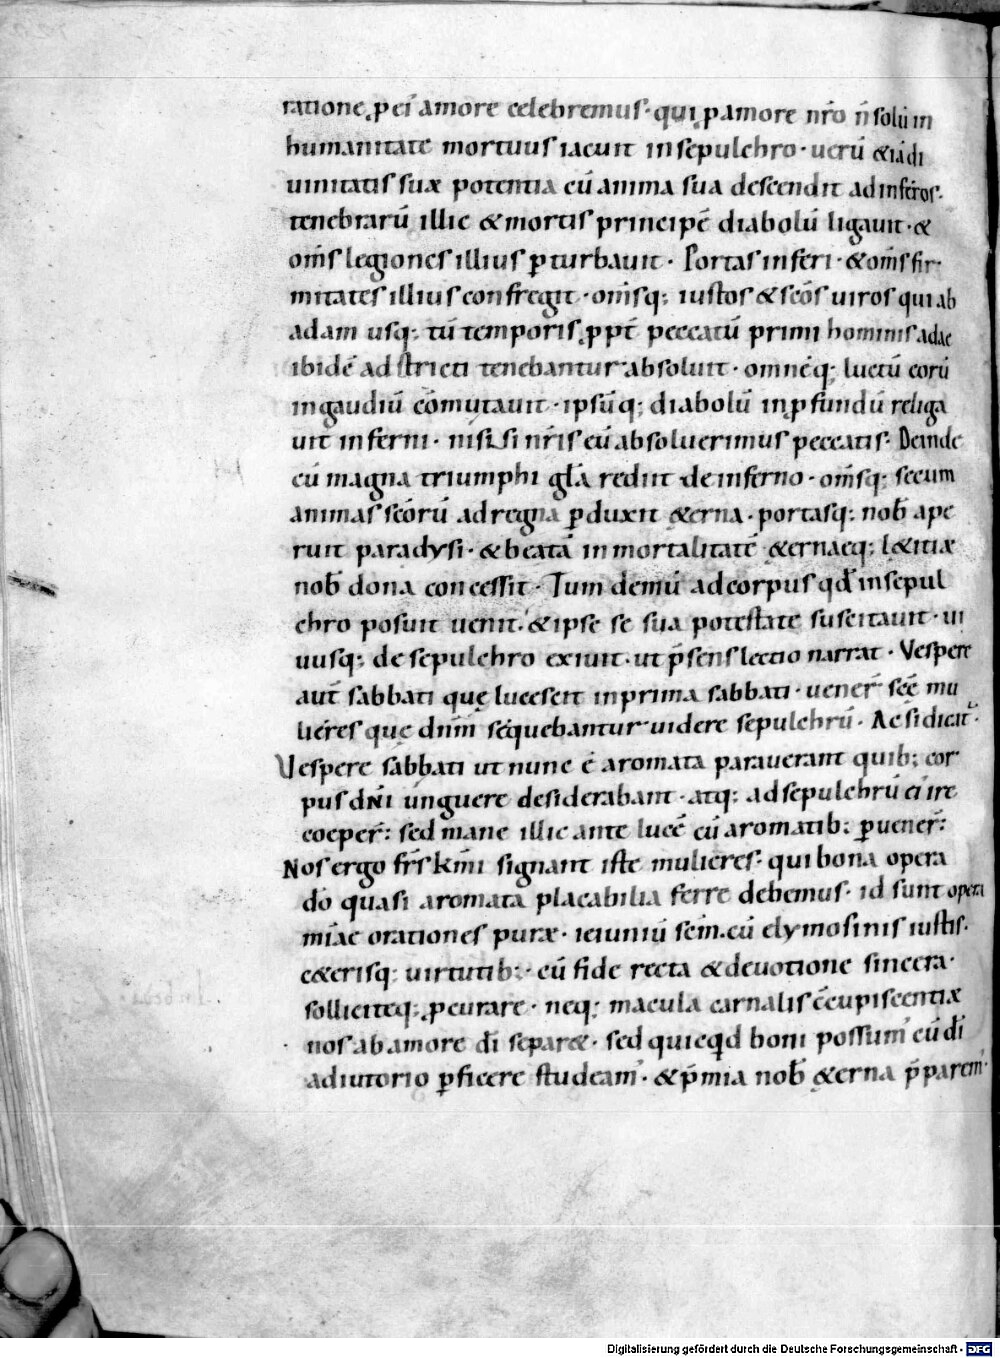 ratione ꝓ ei᷒ amore celebremus· qui ꝓ amore nr̄o n̄ solū in
humanitate mortuus iacuit in sepulchro· uerū &iā di
uinitatis suæ potentia cū anima sua descendit ad inferos·
tenebrarū illic & mortis principē diabolū ligauit· &
om̄s legiones illius ꝑturbauit· Portas inferi· & om̄s fir
mitates illius confregit· om̄sq; iustos & sc̄os uiros qui ab
adam usq; tū temporis ꝓpt̄ peccatū primi hominis adae
ibidē ad stricti tenebantur absoluit· omnēq; luctū eorū
in gaudiū cōmutauit· ipsūq; diabolū in ꝓfundū religa
uit inferni· nisi si nr̄is eū absoluerimus peccatis· Deinde
cū magna triumphi gl̄a rediit de inferno· om̄sq; secum
animas sc̄orū ad regna ꝑduxit &erna· portasq; nob̄ ape
ruit paradysi· & beatā inmortalitatē &ernaeq; l&itiæ
nob̄ dona concessit· Tum demū ad corpus qd̄ in sepul
chro posuit uenit· & ipse se sua potestate suscitauit· ui
uusq; de sepulchro exiuit· ut p̄sens lectio narrat· Vespere
aut̄ sabbati quę lucescit in prima sabbati· uener̄ sc̄ę mu
lieres quę dn̄m sequebantur uidere sepulchrū· Ac si dicit᷒·
Vespere sabbati ut nunc ē aromata parauerant quib; cor
pus dn̄i unguere desiderabant· atq; ad sepulchrū ei᷒ ire
coeper̄; sed mane illic ante lucē cū aromatib; ꝑuener̄;
Nos ergo fr̄s km̄i signant iste mulieres· qui bona opera
dō quasi aromata placabilia ferre debemus· id sunt opera
mīae orationes puræ· ieiuniū sc̄m· cū elymosinis iustis·
c&erisq; uirtutib;· cū fide recta & deuotione sincera·
solliciteq; ꝓcurare· neq; macula carnalis cc̄upiscentiæ
nos ab amore dī separ&· sed quicqd boni possum᷒ cū dī
adiutorio ꝑficere studeam᷒· & p̄mia nob̄ &erna p̄parem᷒·
Digitalisierung gefördert durch die Deutsche Forschungsgemeinschaft - DFG